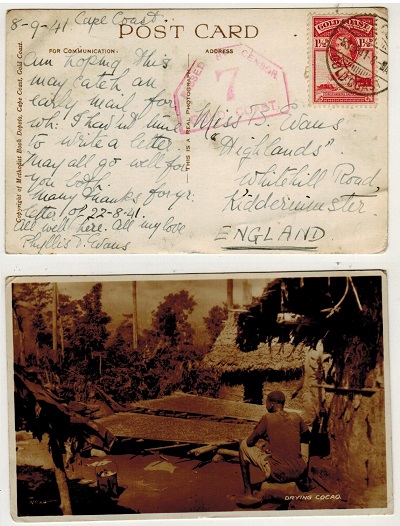 8-9-41 Cape Coast.
POST CARD
FOR COMMUNICATION.
ADDRESS
Am hoping this
may catch an
early mail for
wh: I had'nt time
to write a letter.
May all go well for
you both.
Many thanks for yr.
letter of 22-8-41.
All well here. All my love
Phyllis D. Wans
Copyright of Methodist Book Depots, Cape Coast, Gold Coast.
THIS IS A REAL PHOTOGRAPH
PASSED BY CENSOR
7
GOLD COAST
GOLD COAST
1½D
1½D
Miss B. Wans
"Highlands"
Whitehill Road,
Kidderminster.
ENGLAND
DRYING COCAO.